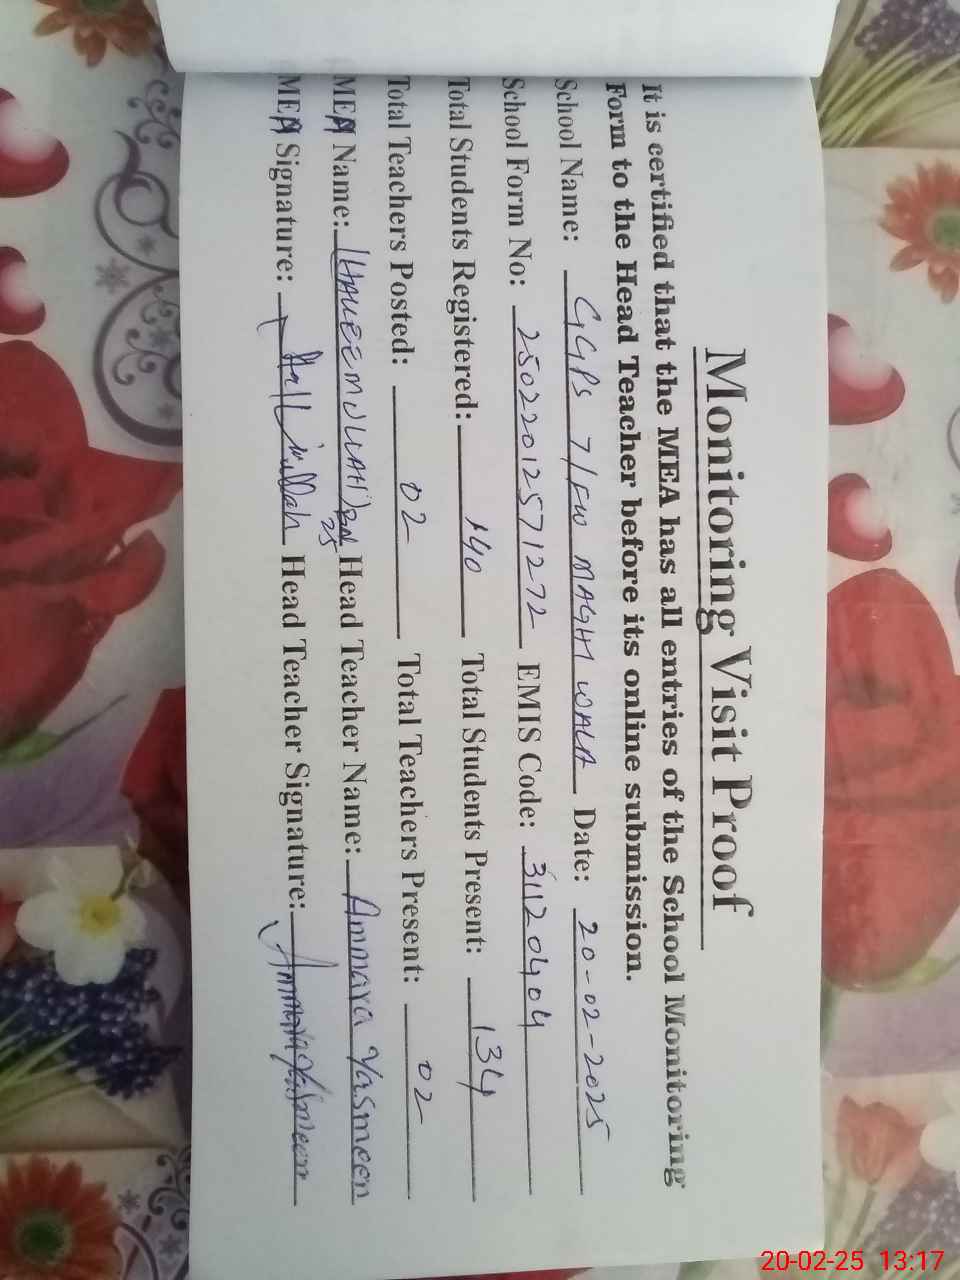 Monitoring Visit Proof
It is certified that the MEA has all entries of the School Monitoring
Form to the Head Teacher before its online submission.
School Name: GGPS 7/FW MAGHI WALA Date: 20-02-2025
School Form No: 25022012571272 EMIS Code: 31120404
Total Students Registered: 140 Total Students Present: 134
Total Teachers Posted: 02 Total Teachers Present: 02
MEA Name: KHALEEMULLAH Head Teacher Name: Ammara Yasmeen
25
MEA Signature: Head Teacher Signature: Ammara Yasmeen
20-02-25 13:17